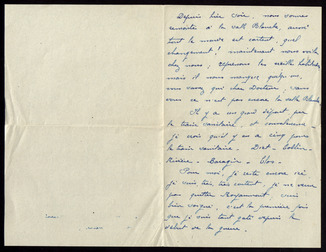 Depuis hier soir, nous sommes
remontés à la salle Blanche, aussi
tout le monde est content, quel
changement ! maintenant nous voilà
chez nous, reprenons les vieilles habitudes
mais il nous manque quelqu'un,
vous savez qui cher Docteur, sans
vous ce n'est pas encore la salle Blanche
Il y a un grand départ par
le train sanitaire, et
je crois qu'il y en a cinq pour
le train sanitaire - Collin -
Rivière - Baragin -
Pour moi, je reste encore ici
je suis très très content, je ne veux
pas quitter Royaumont, suis
bien soigné, c'est la première fois
que je suis tant gâté depuis le
début de la guerre.